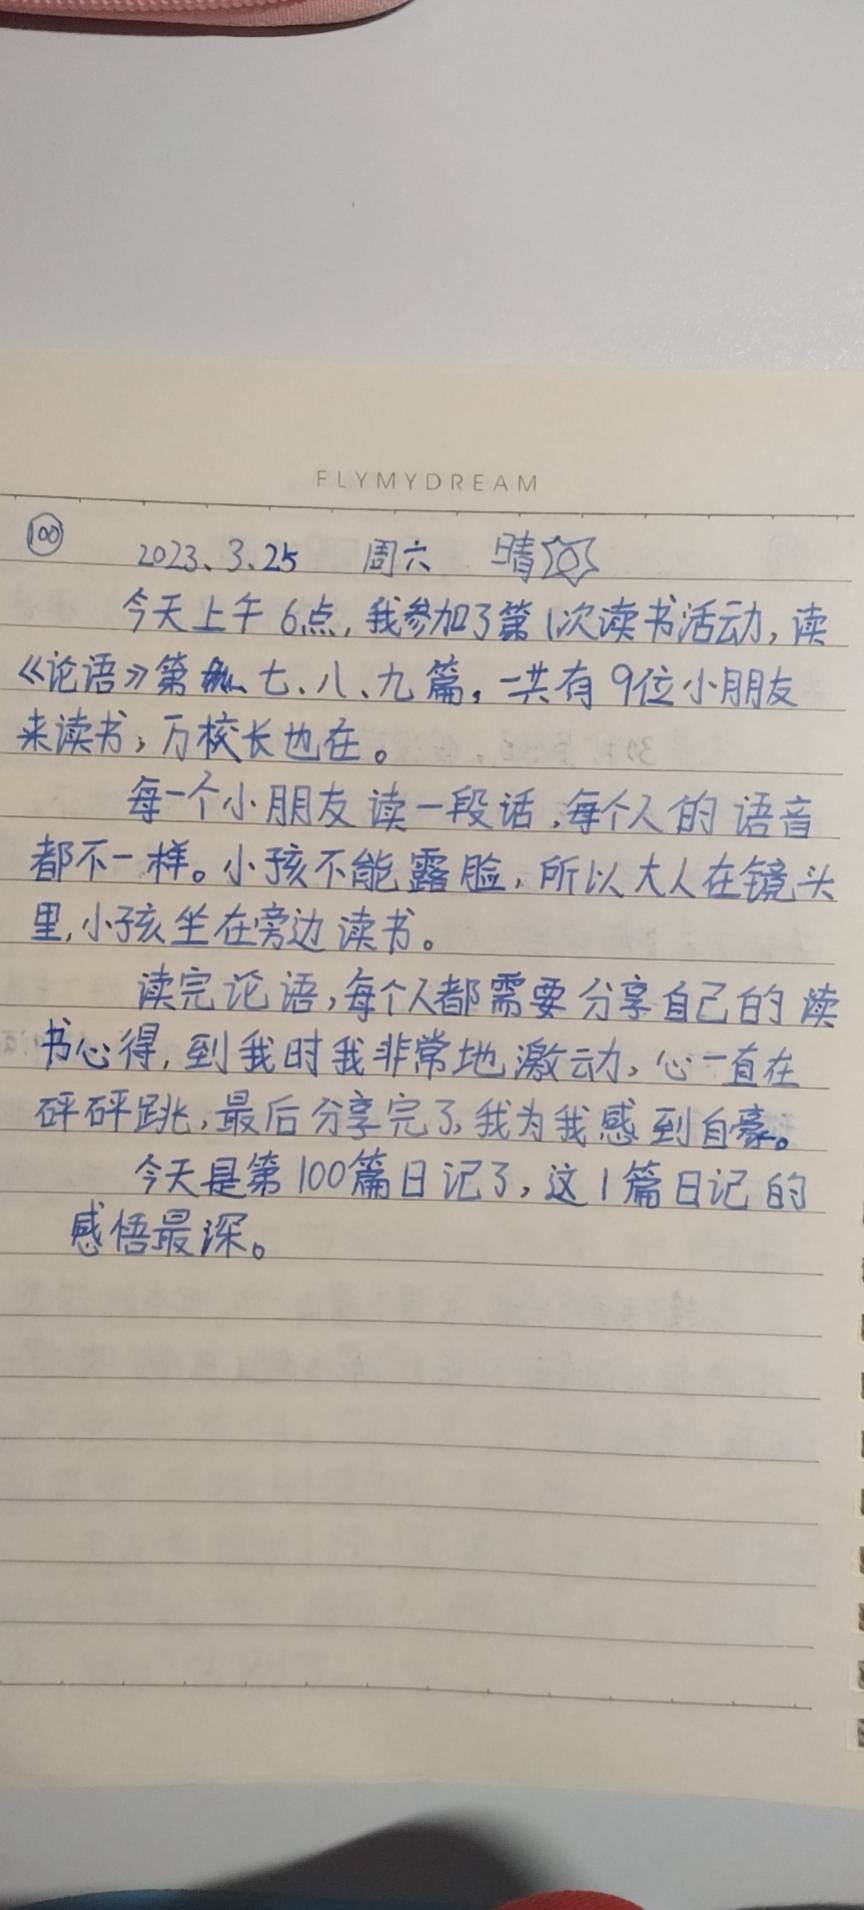 FLYMYDREAM
100
2023、3、25 周六 晴
今天上午6点,我参加了第1次读书活动,读
《论语》第 七、八、九篇,一共有9位小朋友
来读书,万校长也在。
每一个小朋友读一段话,每个人的语音
都不一样。小孩不能露脸,所以大人在镜头
里,小孩坐在旁边读书。
读完论语,每个人都需要分享自己的读
书心得,到我时我非常地激动,心一直在
砰砰跳,最后分享完了,我为我感到自豪。
今天是第100篇日记了,这1篇日记的
感悟最深。